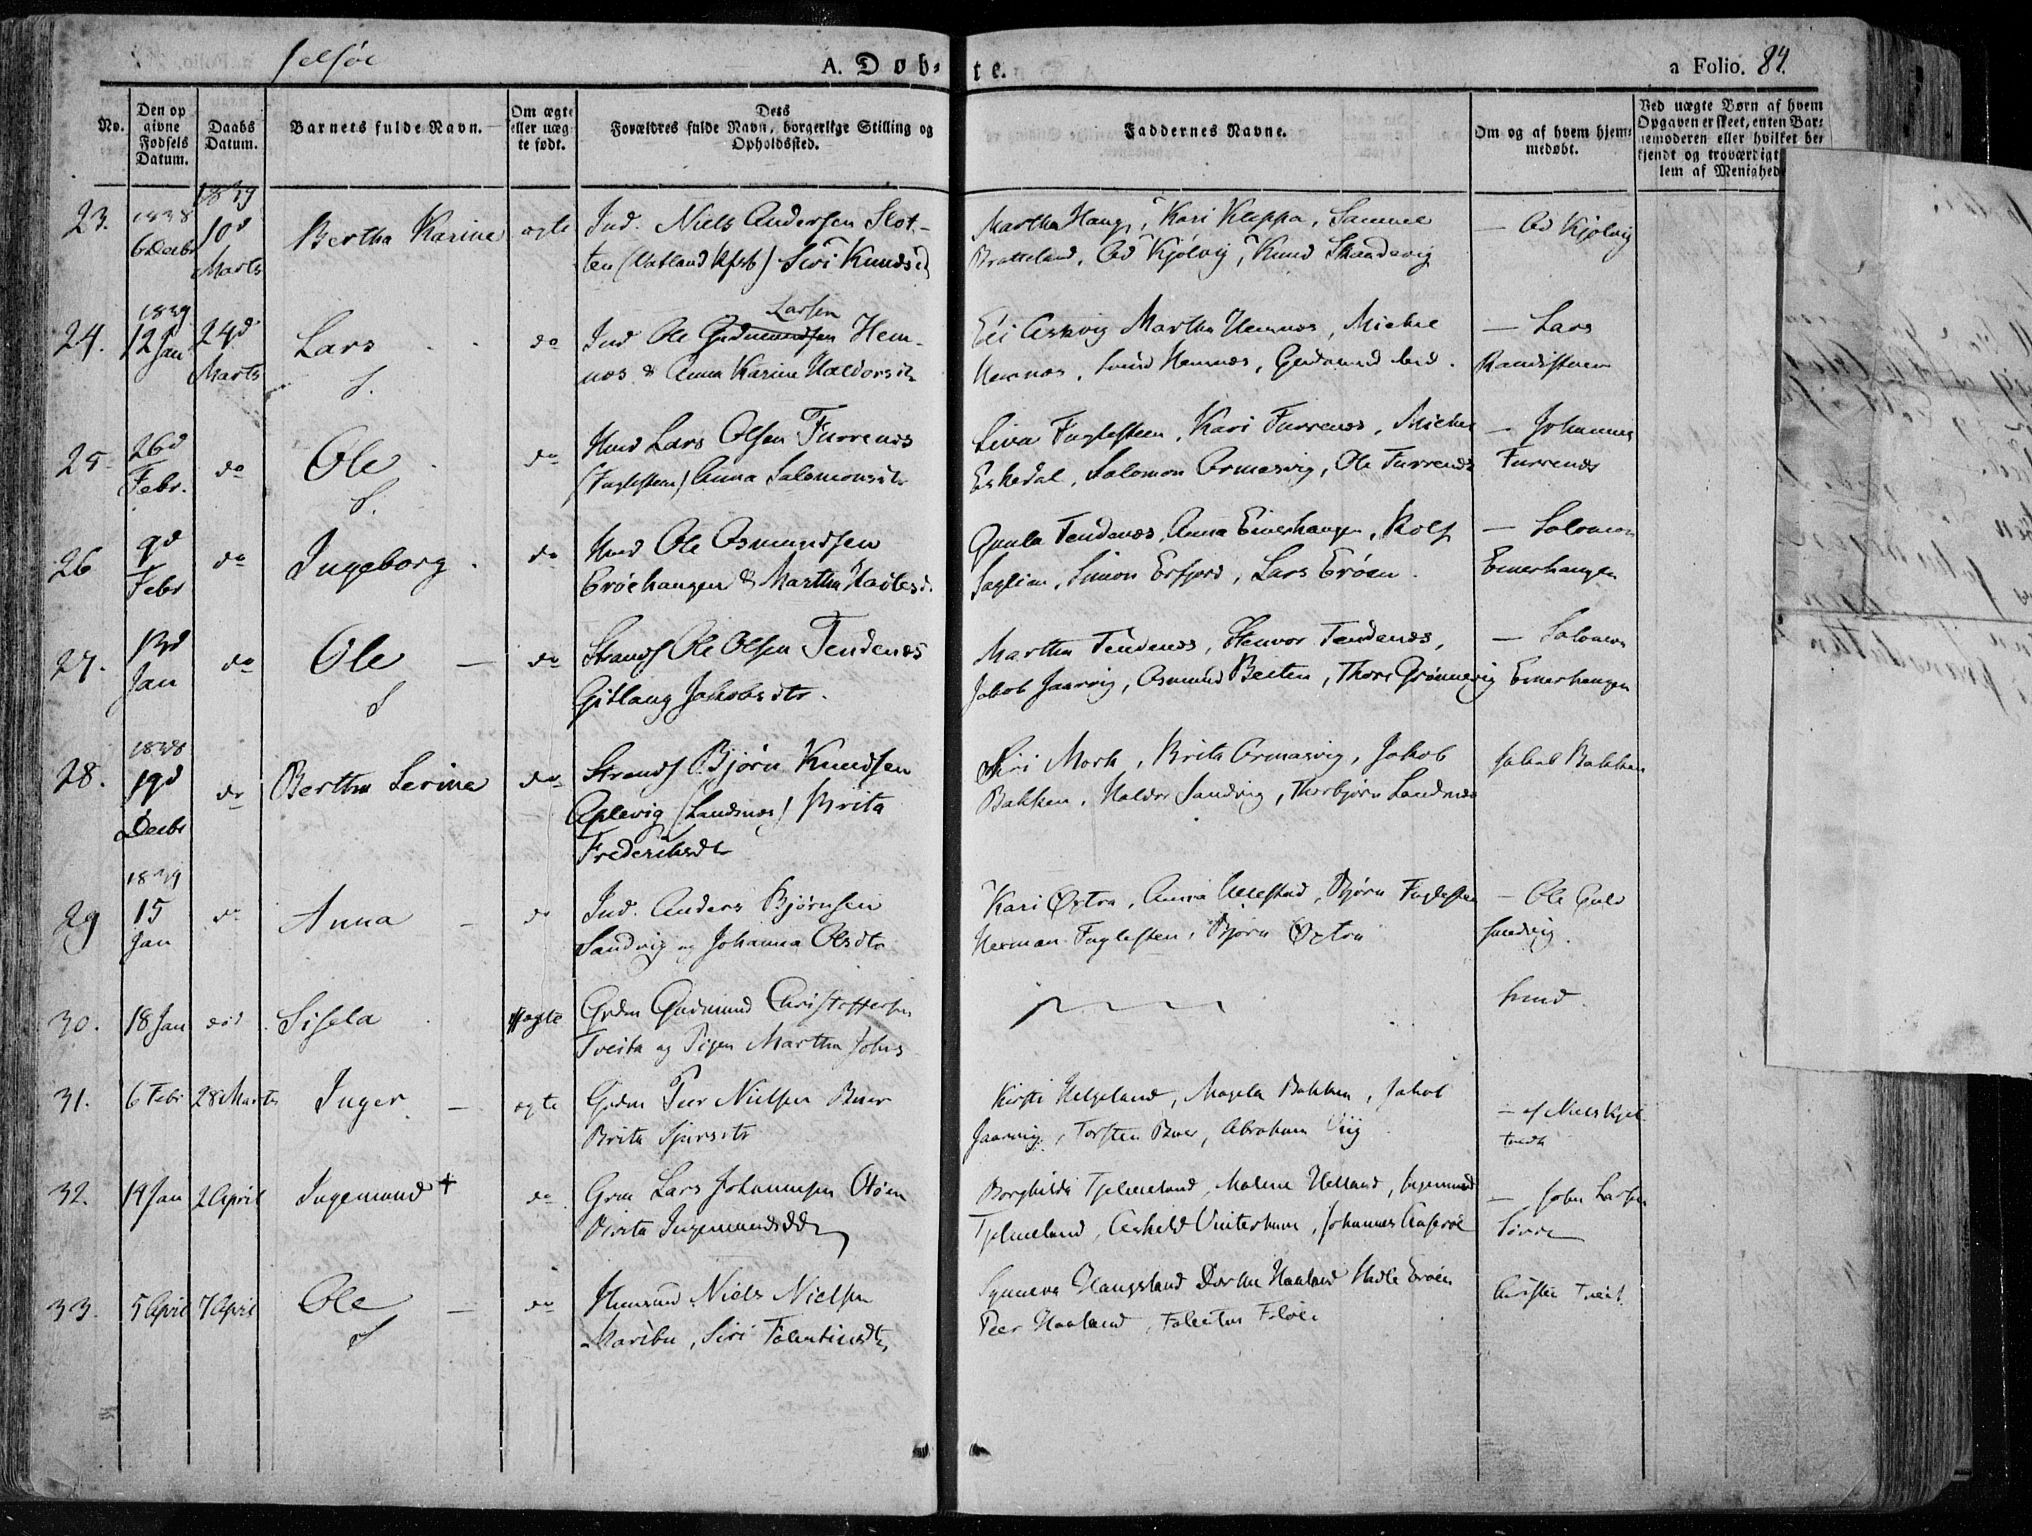 Jelsøe
A. Døb-
te.
a Folio. 84.
No.
Den op
givne
Fødsels
Datum.
Daabs
Datum.
Barnets fulde Navn.
Om ægte
eller uæg
te født.
Dets
Forældres fulde Navn, borgerlige Stilling og
Opholdssted.
Faddernes Navne.
Om og af hvem hjem-
medøbt.
Ved uægte Børn af hvem
Opgaven er skeet, enten Bar-
nemoderen eller hvilket be-
kjendt og troværdigt
lem af Menighed
23.
1838
6 Decbr
1839
10d
Marts
Bertha Karine
ægte
Ind. Niels Andersen Slot-
ten (Vatland Kfsb) Siri Knudsd
Martha Haug, Kari Kleppa, Samuel
Bratteland, Ad Kjølvig, Knud Skandevig
— Ad Kjølvig
24.
1839
12 Jan
24d
Marts
Lars
S.
do
Larsen
Ind Ole Gudmundsen Hem-
næs & Anna Karine Haldorsdtr
Eli Asvig Martha Hemnæs, Michel
Hemnæs, Svend Hemnæs, Gudmund ibid.
— Lars
Ramsteen
25
26d
Febr.
do
Ole
S.
do
Hmd Lars Olsen Furrenæs
(Fuglesteen) Anna Salomonsdtr
Siva Fuglesteen, Kari Furrenæs, Michel
Eskedal, Salomon Ormasvig, Ole Furrenæs
— Johannes
Furrenæs
26
9d
Febr
do
Ingeborg
do
Hmd Ole Osmundsen
Erøehaugen & Martha Hadlesd.
Gunla Tendenæs, Anna Einerhaugen, Rolf
Saglien, Simon Erfjord, Lars Erøen.
— Solomon
Einerhaugen
27.
13d
Jan
do
Ole
S
do
Strands Ole Olsen Tendenæs
Gitlaug Jakobsdtr.
Martha Tendenæs, Stenvor Tendenæs,
Jakob Jaarvig, Osmund Beiten, Thore Grønnevig
— Solomon
Einerhaugen
28.
1838
19d
Decbr
do
Bertha Serine
do
Strands Bjørn Knudsen
Aplevig (Landsnæs) Brita
Frederiksdtr
Siri Mork, Brita Ormasvig, Jakob
Bakken, Haldor Sandvig, Thorbjørn Landsnæs
Jakob Bakken
29
1839
15
Jan
do
Anna
do
Ind. Anders Bjørnsen
Sandvig og Johanna Olsdtr
Kari Øxtra, Anna Ulestad, Bjørn Fuglesten
Herman Fuglesten, Bjørn Øxtra
— Ole Guld
smedvig.
30.
18 Jan
død
Sisela
uægte
Grdm Gudmund Christoffersen
Tveita og Pigen Martha Johs
31.
6 Febr
28 Marts
Inger
ægte
Grdm Peer Nielsen Boer
Brita Sjursdtr
Kirsti Helgeland, Magela Bakken, Jakob
Jaarvig, Torsten Boer, Abraham Viig
— af Niels Kjel
tvedt
32.
14 Jan
2 April
Ingemund +
do
Grm Lars Johannesen Otøen
Brita Ingemundsdtr
Borghilda Tjelmeland, Malene Helland, Ingemund
Tjelmeland, Askeld Vinterhun, Johannes Aaserøe
— John Larsen
Sørre
33.
5 April
7 April
Ole
S
do
Huusmd Niels Nielsen
Maribu, Siri Tolentinsdtr
Synneva Haugsland Dorthe Haaland Hadle Erøen
Peer Haaland, Tolentin Foløe
Christen Tveit